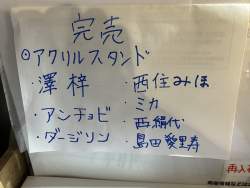 完売
◎アクリルスタンド
・澤 梓
・アンチョビ
・ダージリン
・西住みほ
・ミカ
・西絹代
・島田愛里寿
再入